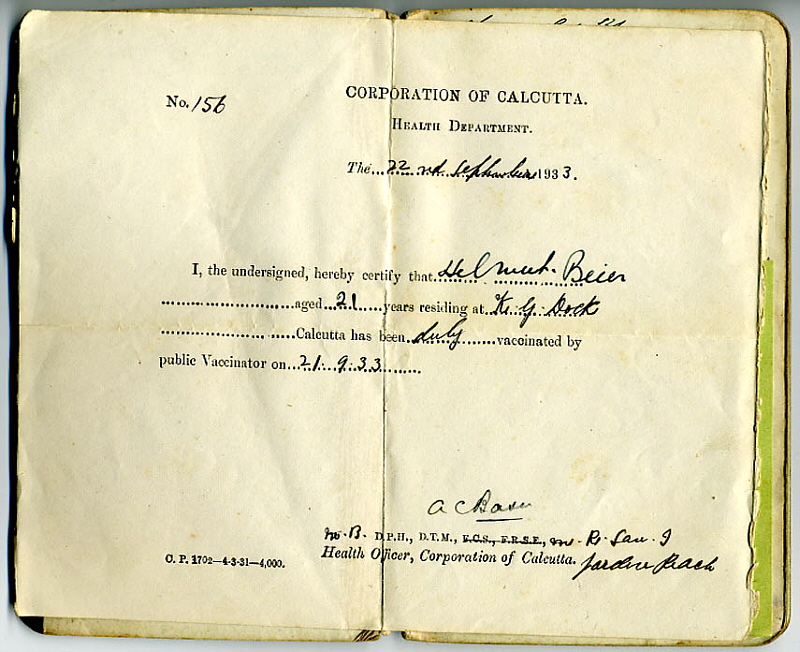 No. 156
CORPORATION OF CALCUTTA.
HEALTH DEPARTMENT.
The...22nd September 1933.
I, the undersigned, hereby certify that Helmut Beier
........................aged...21.....years residing at K. G. Dock
........................Calcutta has been duly.......vaccinated by
public Vaccinator on...21.9.33.......
A C Bose
M.B. D.P.H., D.T.M., F.C.S., F.R.S.E., M.R. San. I
Health Officer, Corporation of Calcutta.
C. P. 1702—4-3-31—4,000.